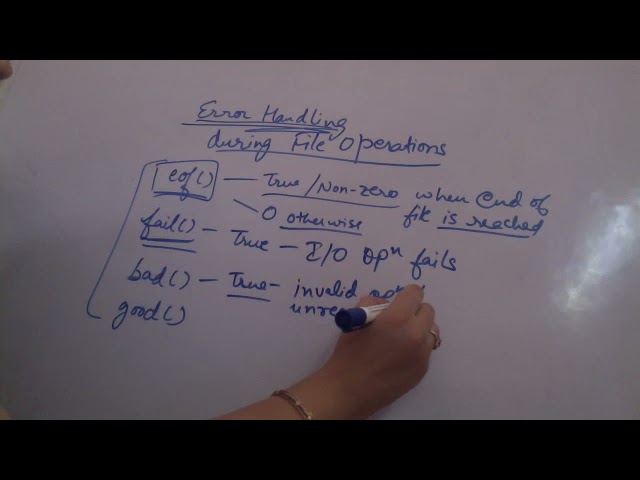 Error Handling
during File Operations
eof() — True/Non-zero when end of
file is reached
0 otherwise
fail() — True — I/O opⁿ fails
bad() — True — invalid
good()